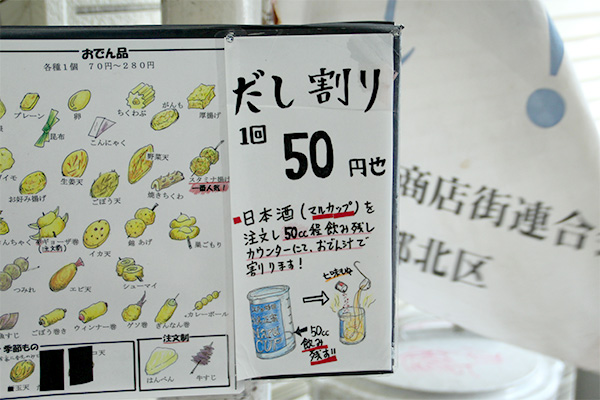 おでん品
各種1個 70円〜280円
プレーン
卵
ちくわぶ
がんも
厚揚げ
昆布
こんにゃく
野菜天
生姜天
ごぼう天
焼きちくわ
スタミナ揚げ
一番人気!
お好み揚げ
ギョーザ巻
(注文制)
イカ天
鶏あげ
巣ごもり
つみれ
エビ天
シューマイ
牛すじ
ごぼう巻き
ウィンナー巻
ゲソ巻
ぎんなん巻
カレーボール
季節もの
玉天
注文制
はんぺん
牛すじ
だし割り
1回
50円也
■日本酒(マルカップ)を
注文し50cc程飲み残し
カウンターにて、おでん汁で
割ります!
七味
CUP
50cc
飲み
残す!!
!
商店街連合
北区